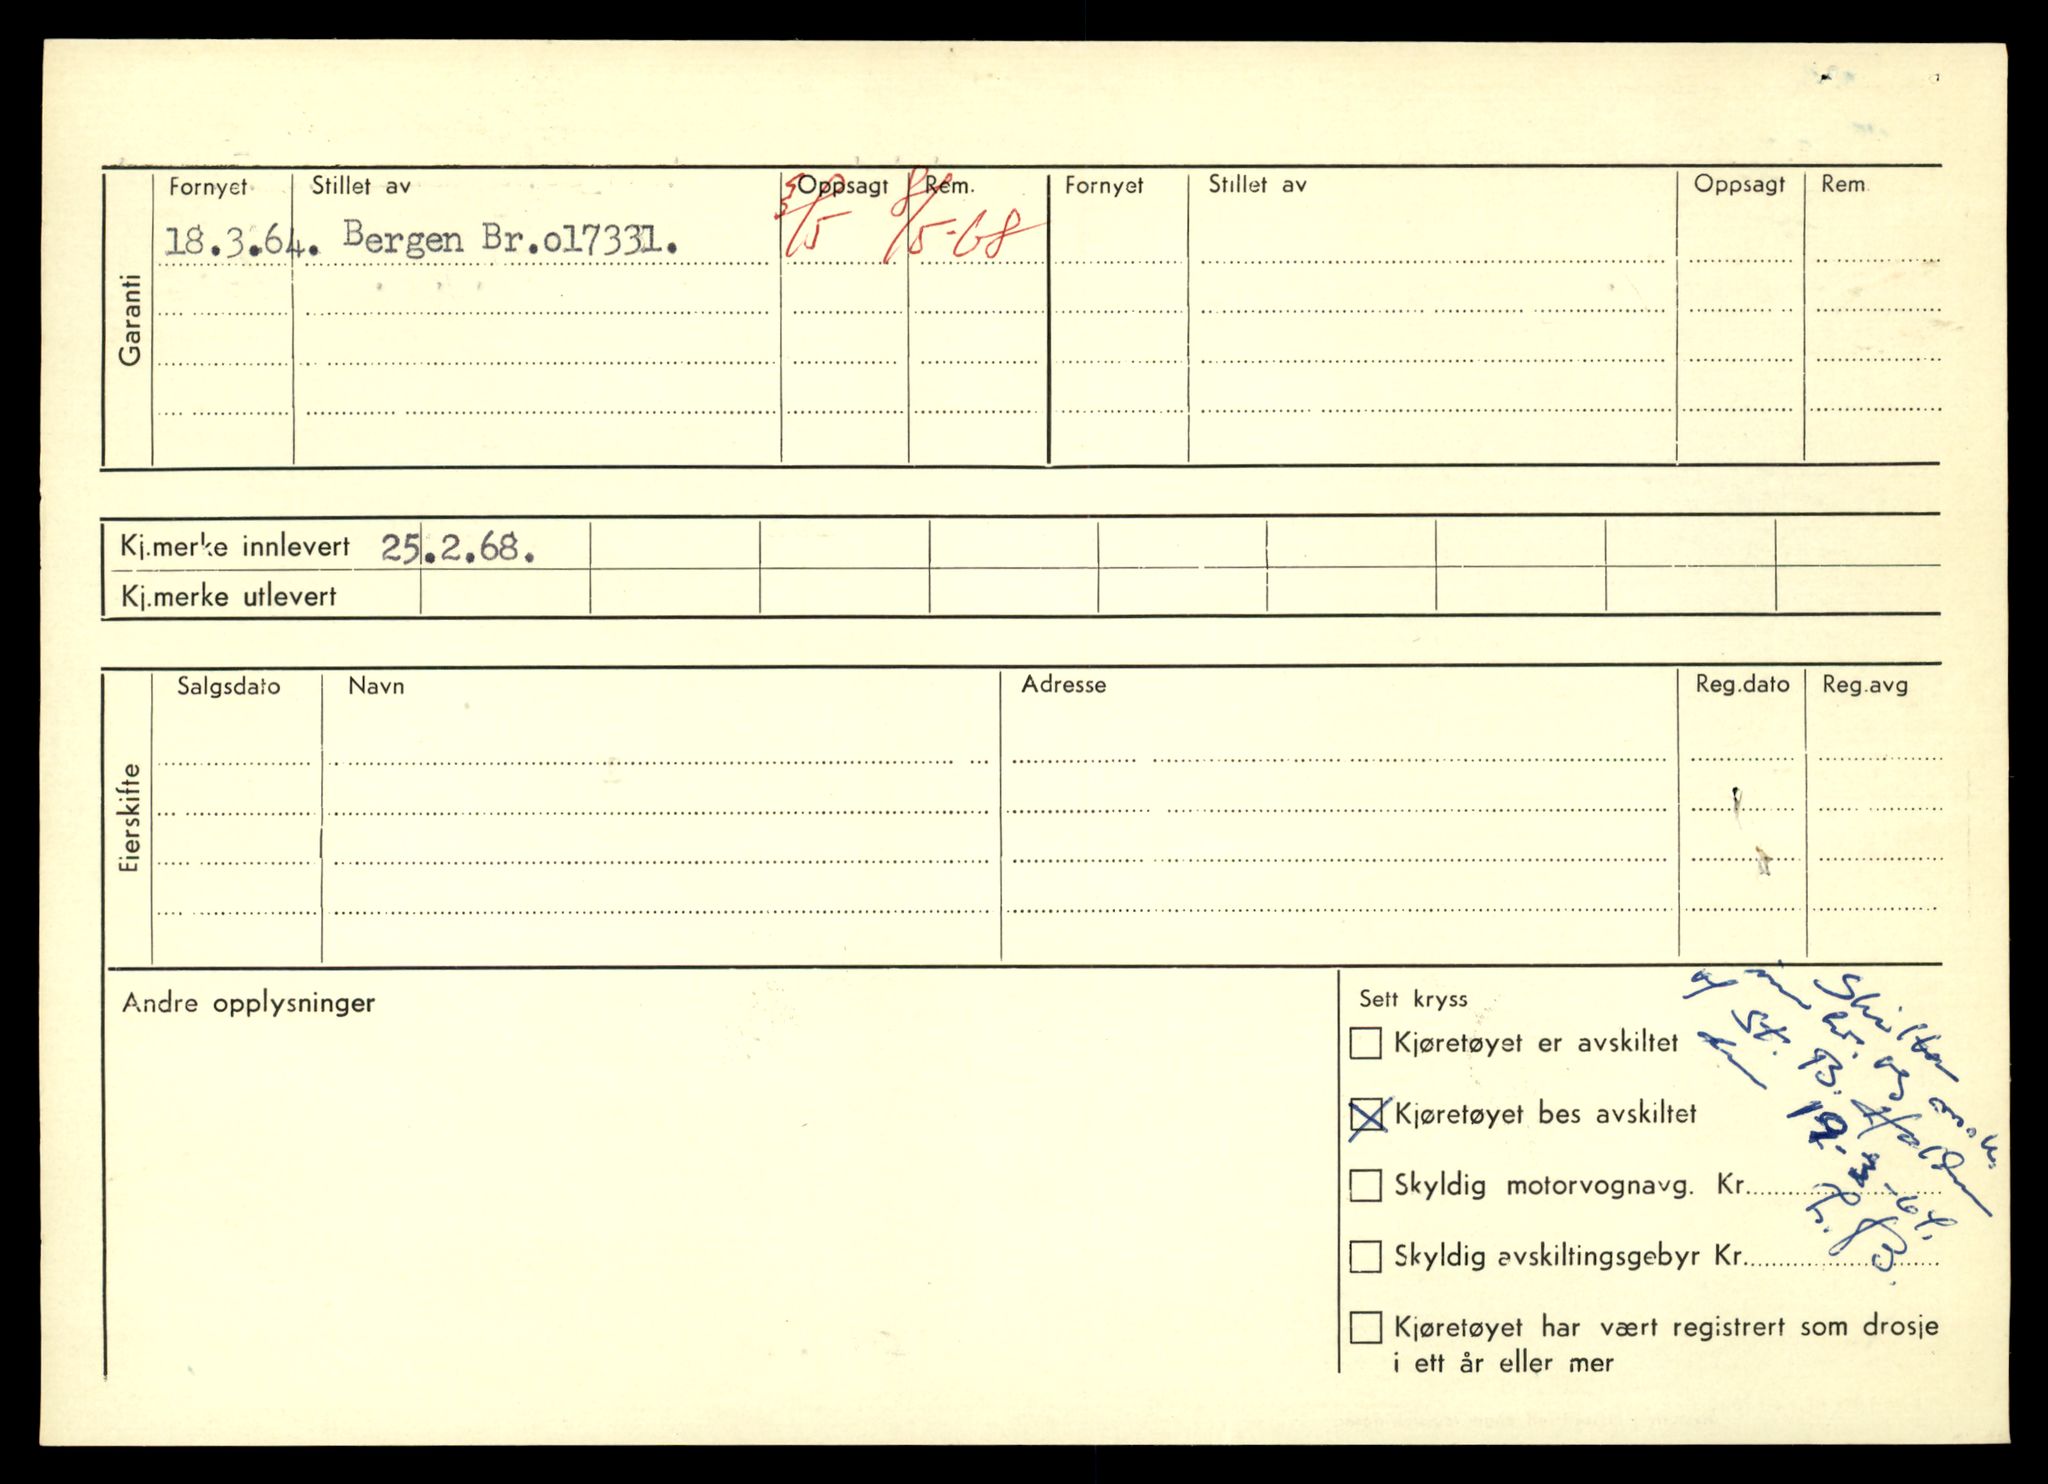 Garanti
Fornyet Stillet av Oppsagt Rem. Fornyet Stillet av Oppsagt Rem.
18.3.64. Bergen Br.o17331. 8/5-68
Kj.merke innlevert 25.2.68.
Kj.merke utlevert
Eierskifte
Salgsdato Navn Adresse Reg.dato Reg.avg
Andre opplysninger
Sett kryss
Kjøretøyet er avskiltet
Kjøretøyet bes avskiltet
Skyldig motorvognavg. Kr
Skyldig avskiltingsgebyr Kr
Kjøretøyet har vært registrert som drosje
i ett år eller mer
Skilter
og
af St. B. Halden
19-3-64.